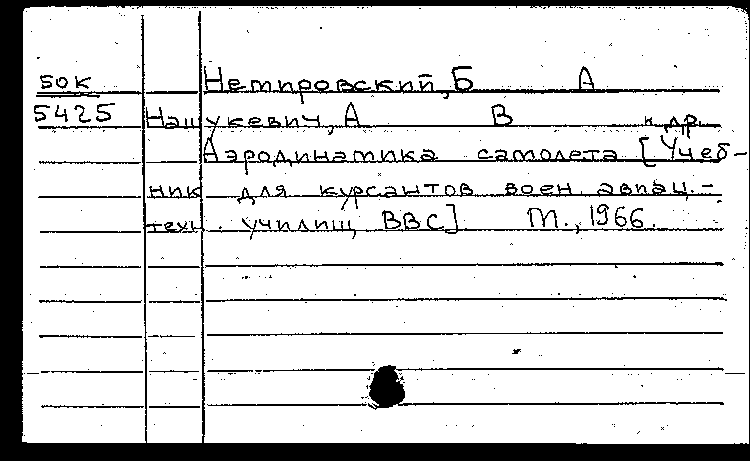 50К Немировский, Б А
5425 Нашукевич, А В и др.
Аэродинамика самолета [Учеб-
ник для курсантов воен. авиац.-
техн. училищ ВВС] М., 1966.